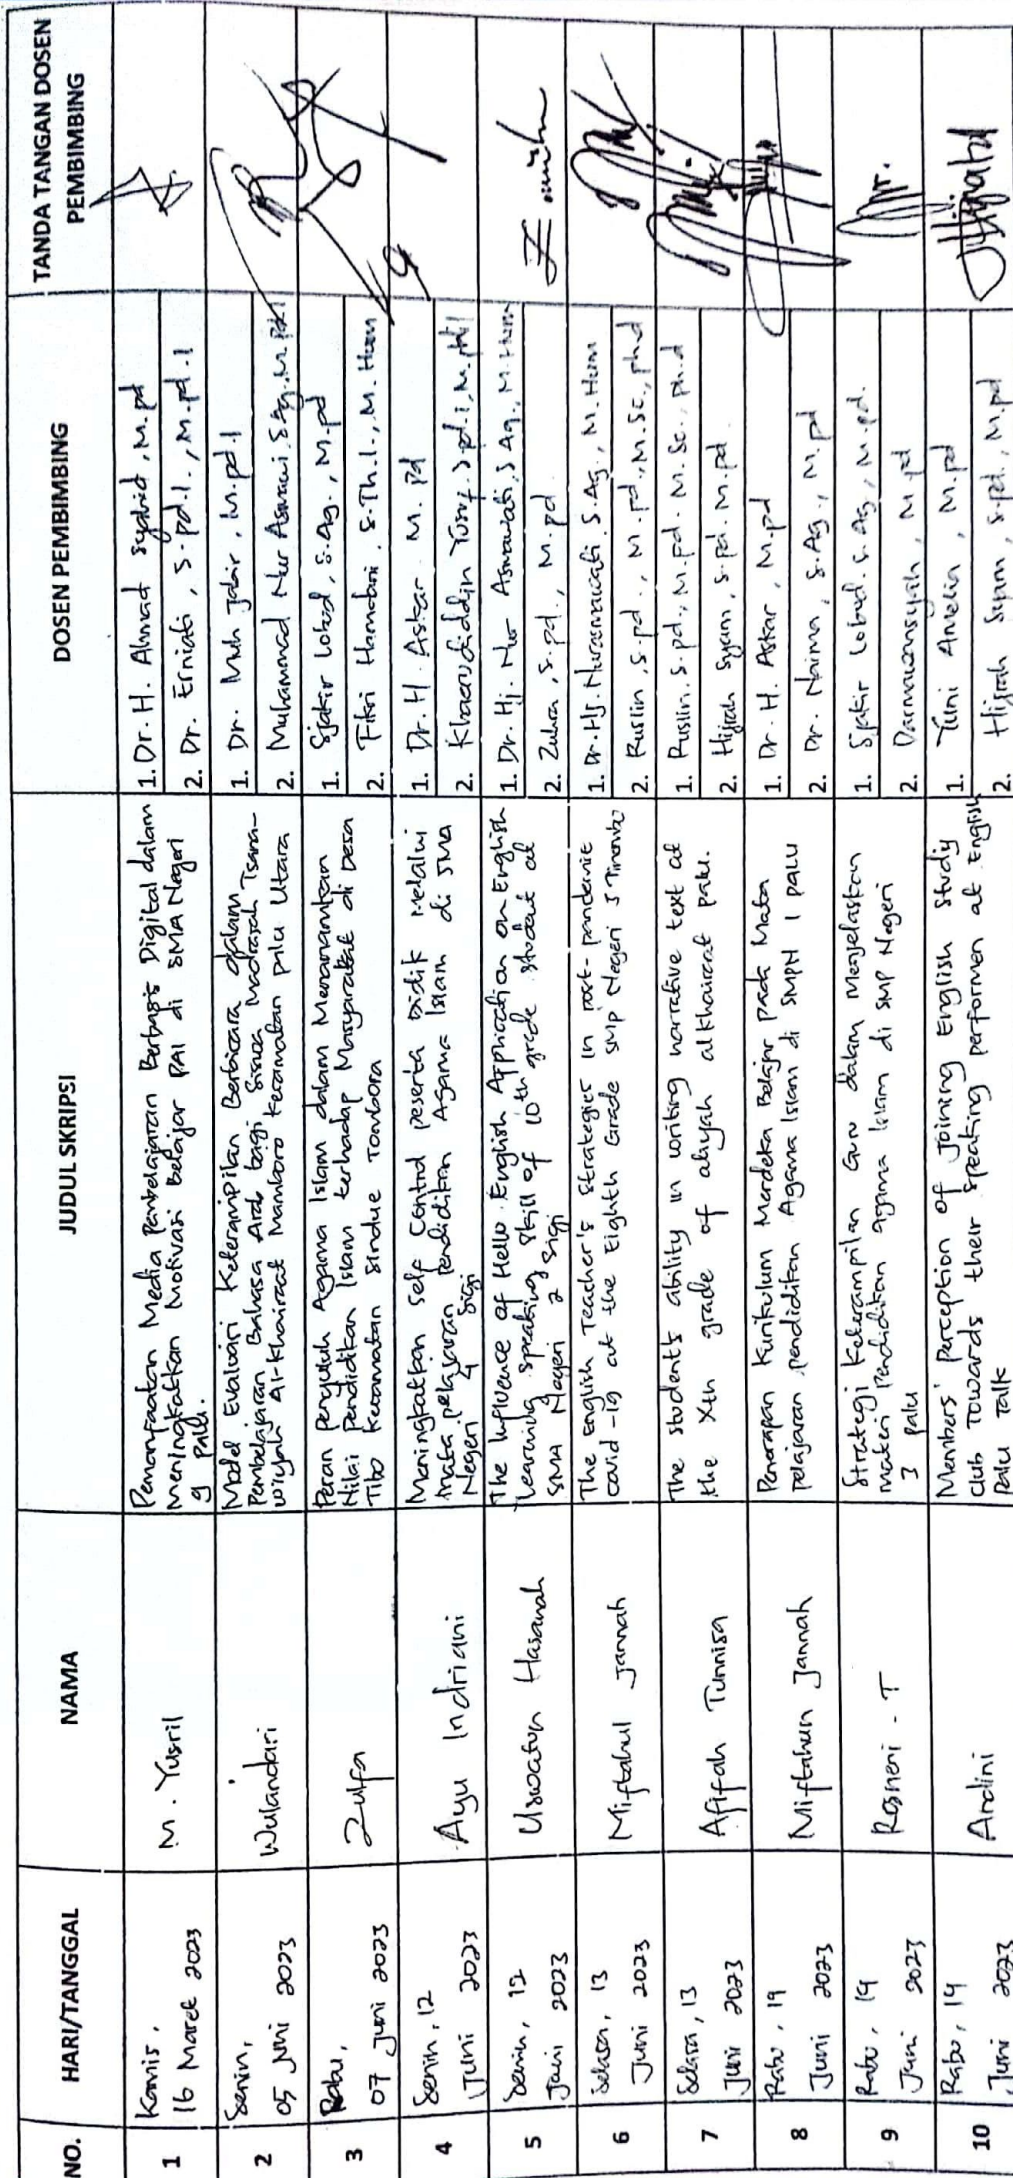 NO.
HARI/TANGGAL
NAMA
JUDUL SKRIPSI
DOSEN PEMBIMBING
TANDA TANGAN DOSEN
PEMBIMBING
1
Kamis,
16 Maret 2023
M. Yusril
Pemanfaatan Media Pembelajaran Berbasis Digital dalam
Meningkatkan Motivasi Belajar PAI di SMA Negeri
9 Palu.
1. Dr. H. Ahmad Syahid, M.pd
2. Dr. Erniati, S.pd.I., M.pd.I
2
Senin,
05 Juni 2023
Wulandari
Model Evaluasi Keterampilan Berbicara dalam
Pembelajaran Bahasa Arab bagi Siswa Madrasah Tsana-
wiyah Al-Khairaat Mamboro Kecamatan Palu Utara
1. Dr. Muh Jabir, M.pd.I
2. Muhammad Nur Asmawi, S.Ag, M.Pd.I
3
Rabu,
07 Juni 2023
Zulfa
Peran Penyuluh Agama Islam dalam Menanamkan
Nilai Pendidikan Islam terhadap Masyarakat di Desa
Tibo Kecamatan Sindue Tombora
1. Sjakir Lobud, S.Ag., M.pd
2. Fikri Hamdani, S.Th.I., M.Hum
4
Senin, 12
Juni 2023
Ayu Indriani
Meningkatkan Self Control peserta Didik Melalui
Mata pelajaran Pendidikan Agama Islam di SMA
Negeri 4 Sigi
1. Dr. H. Askar. M. Pd
2. Khaeruddin Yusuf, S.pd.I, M.pd.I
5
Senin, 12
Juni 2023
Uswatun Hasanah
The Influence of Hello English Application on English
Learning Speaking Skill of 10th grade student at
SMA Negeri 2 Sigi
1. Dr. Hj. Nur Asmawati, S.Ag., M.Hum
2. Zuhra, S.pd., M.pd.
6
Selasa, 13
Juni 2023
Miftahul Jannah
The English Teacher's Strategies In post-pandemic
covid-19 at the Eighth Grade SMP Negeri 5 Tinombo
1. Dr. Hj. Nurasmawati. S.Ag., M.Hum
2. Ruslin, S.pd., M.pd., M.Sc., ph.d
7
Selasa, 13
Juni 2023
Afifah Tunnisa
The students ability in writing narrative text at
the Xth grade of aliyah alkhairaat palu.
1. Ruslin. S.pd., M.pd. M.Sc., ph.d
2. Hijrah Syam, S.pd. M.pd.
8
Rabu, 14
Juni 2023
Miftahun Jannah
Penerapan Kurikulum Merdeka Belajar pada Mata
pelajaran pendidikan Agama Islam di SMPN 1 palu
1. Dr. H. Askar, M.pd
2. Dr. Naima, S.Ag., M.pd
9
Rabu, 14
Juni 2023
Rosneni. T
Strategi Keterampilan Guru dalam Menjelaskan
materi Pendidikan agama Islam di SMP Negeri
3 palu
1. Sjakir Lobud. S.Ag, M.pd.
2. Darmawansyah, M.pd
10
Rabu, 14
Juni 2023
Ardini
Members' Perception of Joining English Study
club Towards their speaking performen at English
Palu Talk
1. Yuni Amelia, M.pd
2. Hijrah Syam, S.pd., M.pd